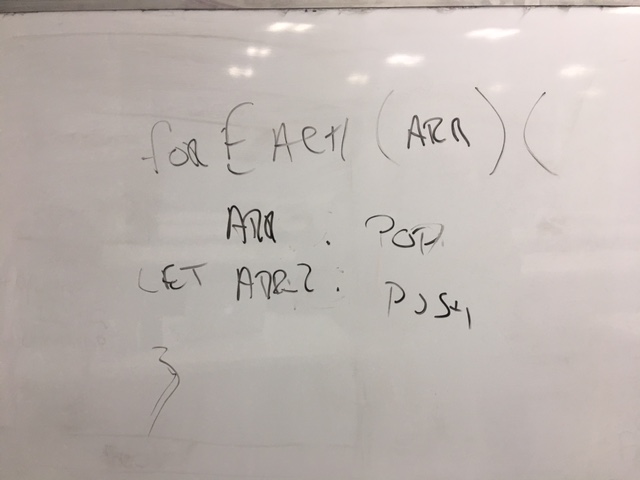 forEACH (ARR) (
ARR . POP
LET ARR2 . PUSH
}